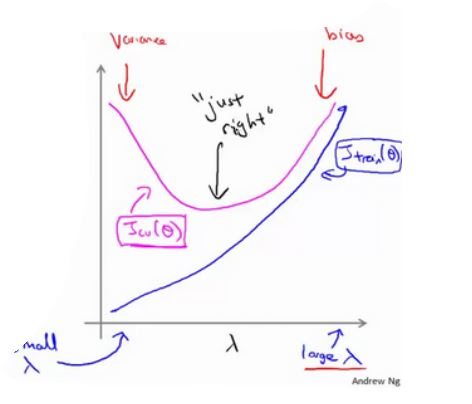 Variance
bias
"just
right"
Jtrain(θ)
Jcv(θ)
small
λ
λ
large λ
Andrew Ng